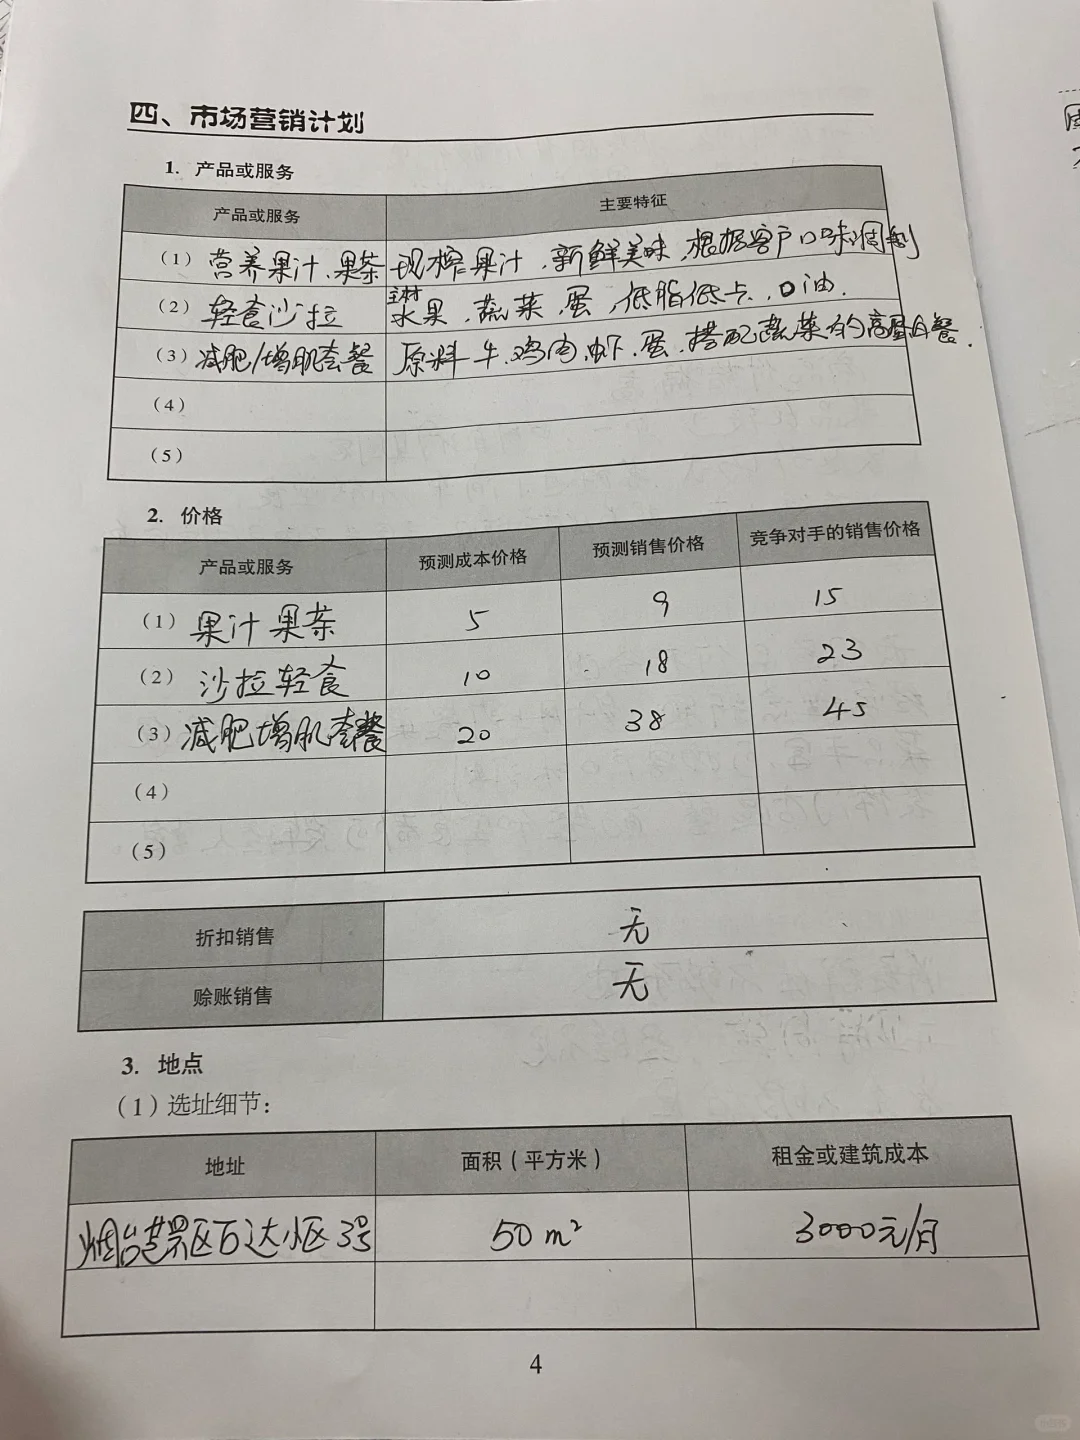 四、市场营销计划
1. 产品或服务
产品或服务 主要特征
(1) 营养果汁、果茶 现榨果汁、新鲜美味、根据客户口味调制
(2) 轻食沙拉 主材水果、蔬菜、蛋、低脂低卡、0油.
(3) 减肥/增肌套餐 原料牛、鸡肉、虾、蛋、搭配蔬菜的高蛋白餐.
(4)
(5)
2. 价格
产品或服务 预测成本价格 预测销售价格 竞争对手的销售价格
(1) 果汁果茶 5 9 15
(2) 沙拉轻食 10 18 23
(3) 减肥增肌套餐 20 38 45
(4)
(5)
折扣销售 无
赊账销售 无
3. 地点
(1) 选址细节:
地址 面积(平方米) 租金或建筑成本
烟台芝罘区万达小区3号 50m² 3000元/月
4